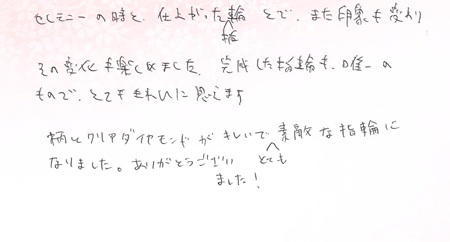 セレモニーの時と、仕上がった指輪とで、また印象も変わり
その変化も楽しめました。完成した指輪も、唯一の
もので、とてもきれいに思えます
柄とクリアダイヤモンドがキレイで とても素敵な指輪に
なりました。ありがとうござい
ました!